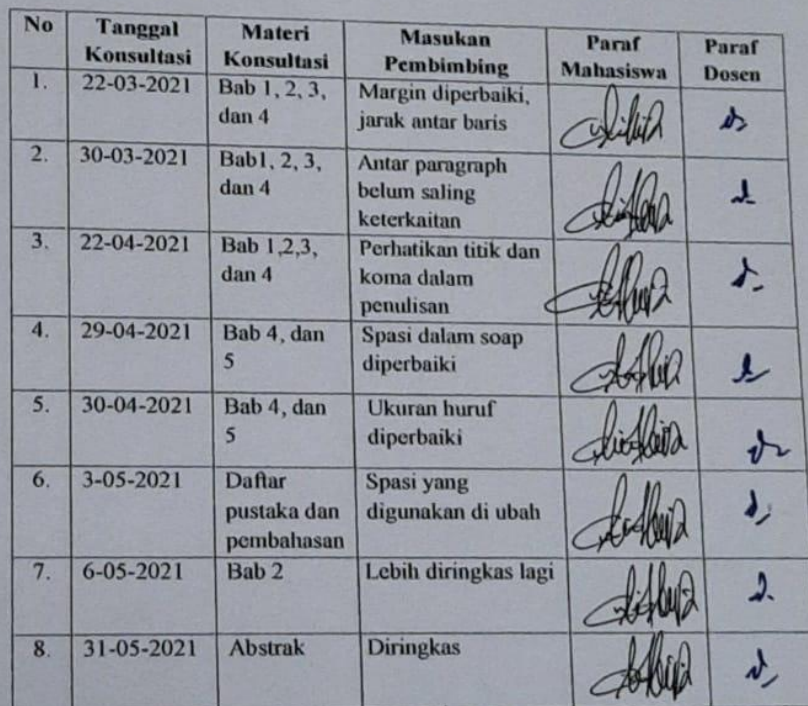 No Tanggal Konsultasi Materi Konsultasi Masukan Pembimbing Paraf Mahasiswa Paraf Dosen
1. 22-03-2021 Bab 1, 2, 3, dan 4 Margin diperbaiki, jarak antar baris
2. 30-03-2021 Bab1, 2, 3, dan 4 Antar paragraph belum saling keterkaitan
3. 22-04-2021 Bab 1,2,3, dan 4 Perhatikan titik dan koma dalam penulisan
4. 29-04-2021 Bab 4, dan 5 Spasi dalam soap diperbaiki
5. 30-04-2021 Bab 4, dan 5 Ukuran huruf diperbaiki
6. 3-05-2021 Daftar pustaka dan pembahasan Spasi yang digunakan di ubah
7. 6-05-2021 Bab 2 Lebih diringkas lagi
8. 31-05-2021 Abstrak Diringkas